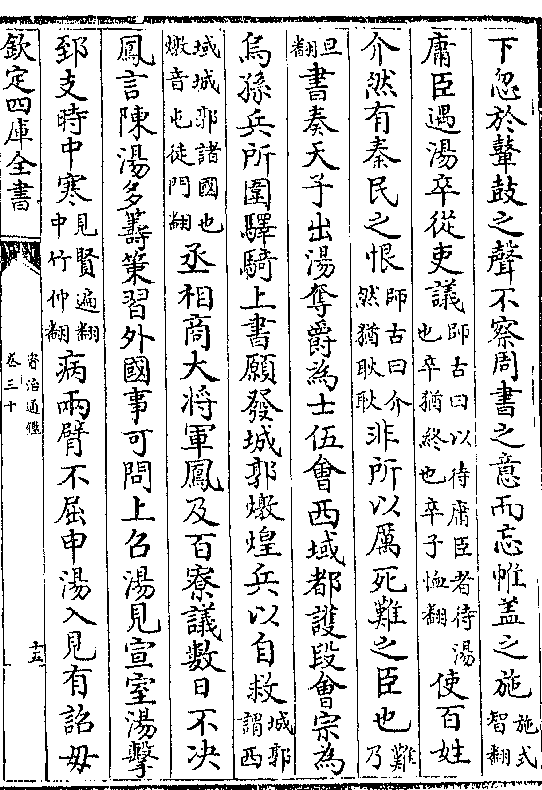 下忽於鼙鼓之聲不察周書之意而忘帷蓋之施施式智翻
庸臣遇湯卒從吏議師古曰以待庸臣者待湯也卒猶終也卒子恤翻使百姓
介然有秦民之恨師古曰介然猶耿耿非所以厲死難之臣也難乃
旦翻書奏天子出湯奪爵為士伍會西域都護段會宗為
烏孫兵所圍驛騎上書願發城郭燉煌兵以自救城郭謂西
域城郭諸國也燉音屯徒門翻丞相商大將軍鳳及百寮議數日不決
鳳言陳湯多籌策習外國事可問上召湯見宣室湯擊
郅支時中寒見賢遍翻中竹仲翻病兩臂不屈申湯入見有詔毋
欽定四庫全書
資治通鑑
卷三十
十五